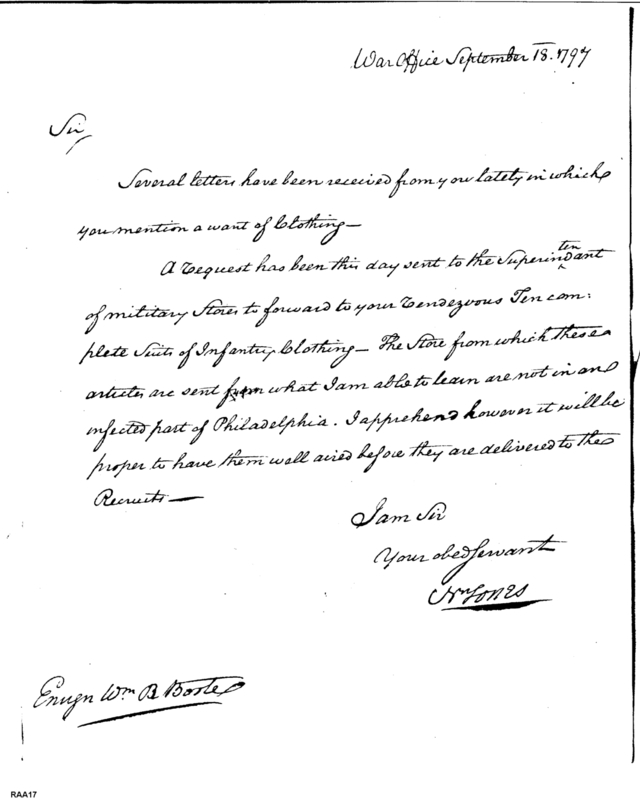 War Office September 18. 1797
Sir
Several letters have been received from you lately in which
you mention a want of Clothing—
A request has been this day sent to the Superin^ten^dant
of military Stores to forward to your rendezvous Ten com:
plete Suits of Infantry Clothing— The Store from which these
articles are sent from what I am able to learn are not in an
infected part of Philadelphia. I apprehend however it will be
proper to have them well aired before they are delivered to the
Recruits—
I am Sir
Your obed Servant
Jones
Ensign Wm B
RAA17